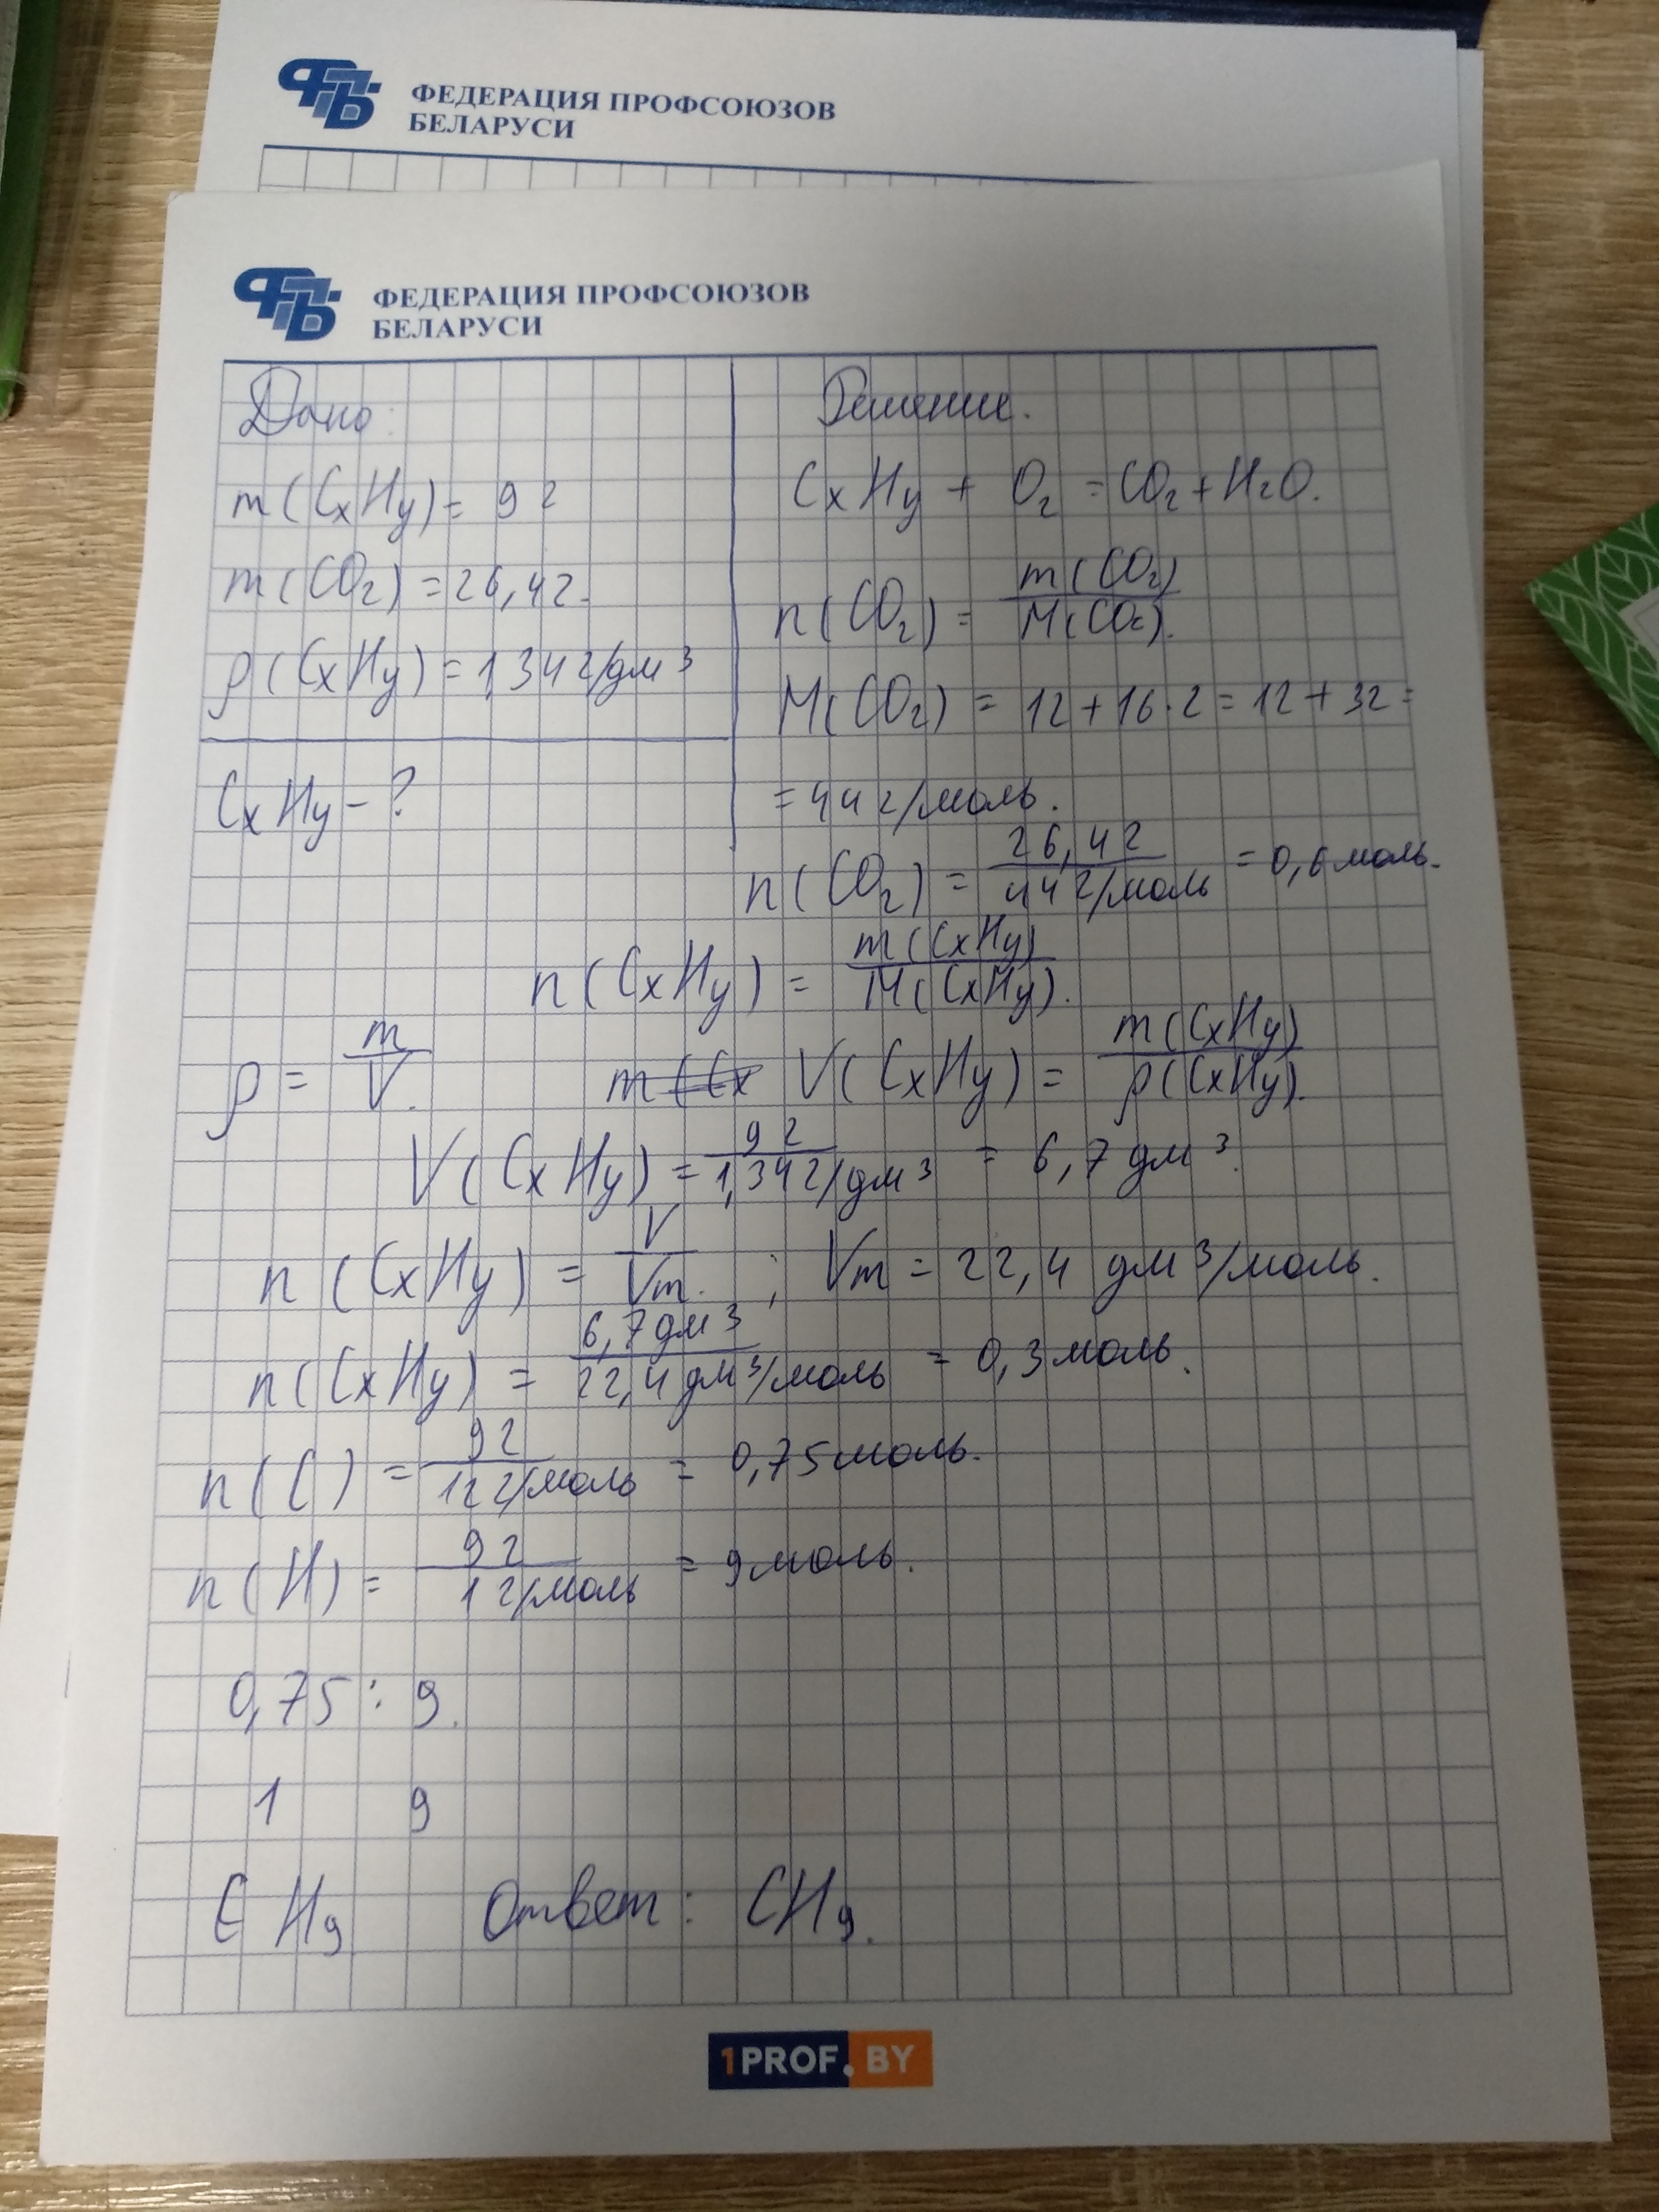 ФЕДЕРАЦИЯ ПРОФСОЮЗОВ
БЕЛАРУСИ
ФЕДЕРАЦИЯ ПРОФСОЮЗОВ
БЕЛАРУСИ
Дано:
m(CxHy) = 9 г
m(CO₂) = 26,4 г.
ρ(CxHy) = 1,34 г/дм³
CxHy - ?
Решение.
CxHy + O₂ = CO₂ + H₂O.
n(CO₂) = m(CO₂) / M(CO₂).
M(CO₂) = 12 + 16 · 2 = 12 + 32 =
= 44 г/моль.
n(CO₂) = 26,4 г / 44 г/моль = 0,6 моль.
n(CxHy) = m(CxHy) / M(CxHy).
ρ = m / V. m(Cx V(CxHy) = m(CxHy) / ρ(CxHy).
V(CxHy) = 9 г / 1,34 г/дм³ = 6,7 дм³.
n(CxHy) = V / Vm. ; Vm = 22,4 дм³/моль.
n(CxHy) = 6,7 дм³ / 22,4 дм³/моль = 0,3 моль.
n(C) = 9 г / 12 г/моль = 0,75 моль.
n(H) = 9 г / 1 г/моль = 9 моль.
0,75 : 9.
1 9
C H₉ Ответ: CH₉.
1PROF.BY